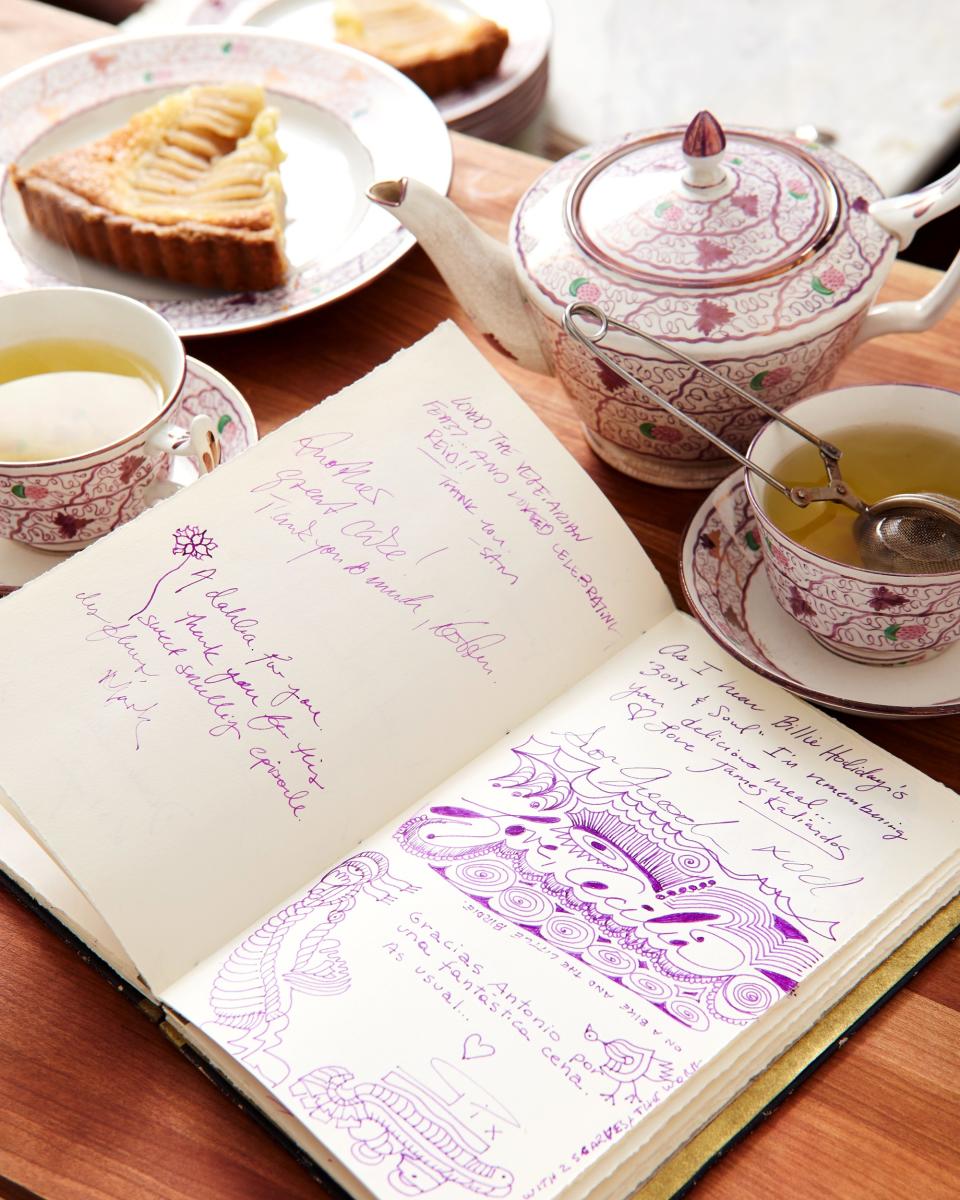 LOVED THE VEGETARIAN
AND LOVED CELEBRATING
REID!! THANK YOU. SAM
Another
great cake!
Thank you so much,
A dahlia. For you.
Thank you for this
sweet smelling episode.
As I hear Billie Holiday's
"Body & Soul" I'm remembering
your delicious meal...
♡ Love James Kaliardos
Gracias Antonio por
una fantástica cena.
As usual...
X
ON A BIKE AND THE LITTLE BIRDIE
WITH 2 SCARVES AT THE WORK